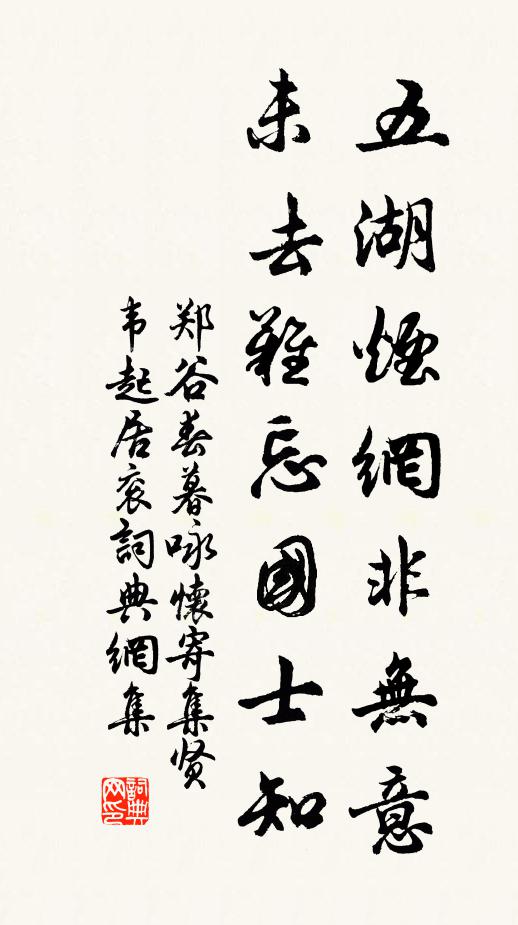 五湖煙網非無意
未去難忘國士知
郑谷春暮咏懷寄集贤
韦起居衮詞典網集
詞典网印